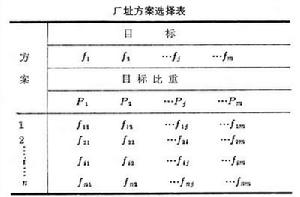 厂址方案选择表
目 标
方 案
f₁ f₂ …fⱼ …fₘ
目标比重
P₁ P₂ …Pⱼ …Pₘ
1 f₁₂ …f₁ⱼ …f₁ₘ
2 f₂₁ f₂₂ …f₂ⱼ …f₂ₘ
fᵢ₁ fᵢ₂ …fᵢⱼ …fᵢₘ
n fₙ₁ fₙ₂ …fₙⱼ …fₙₘ